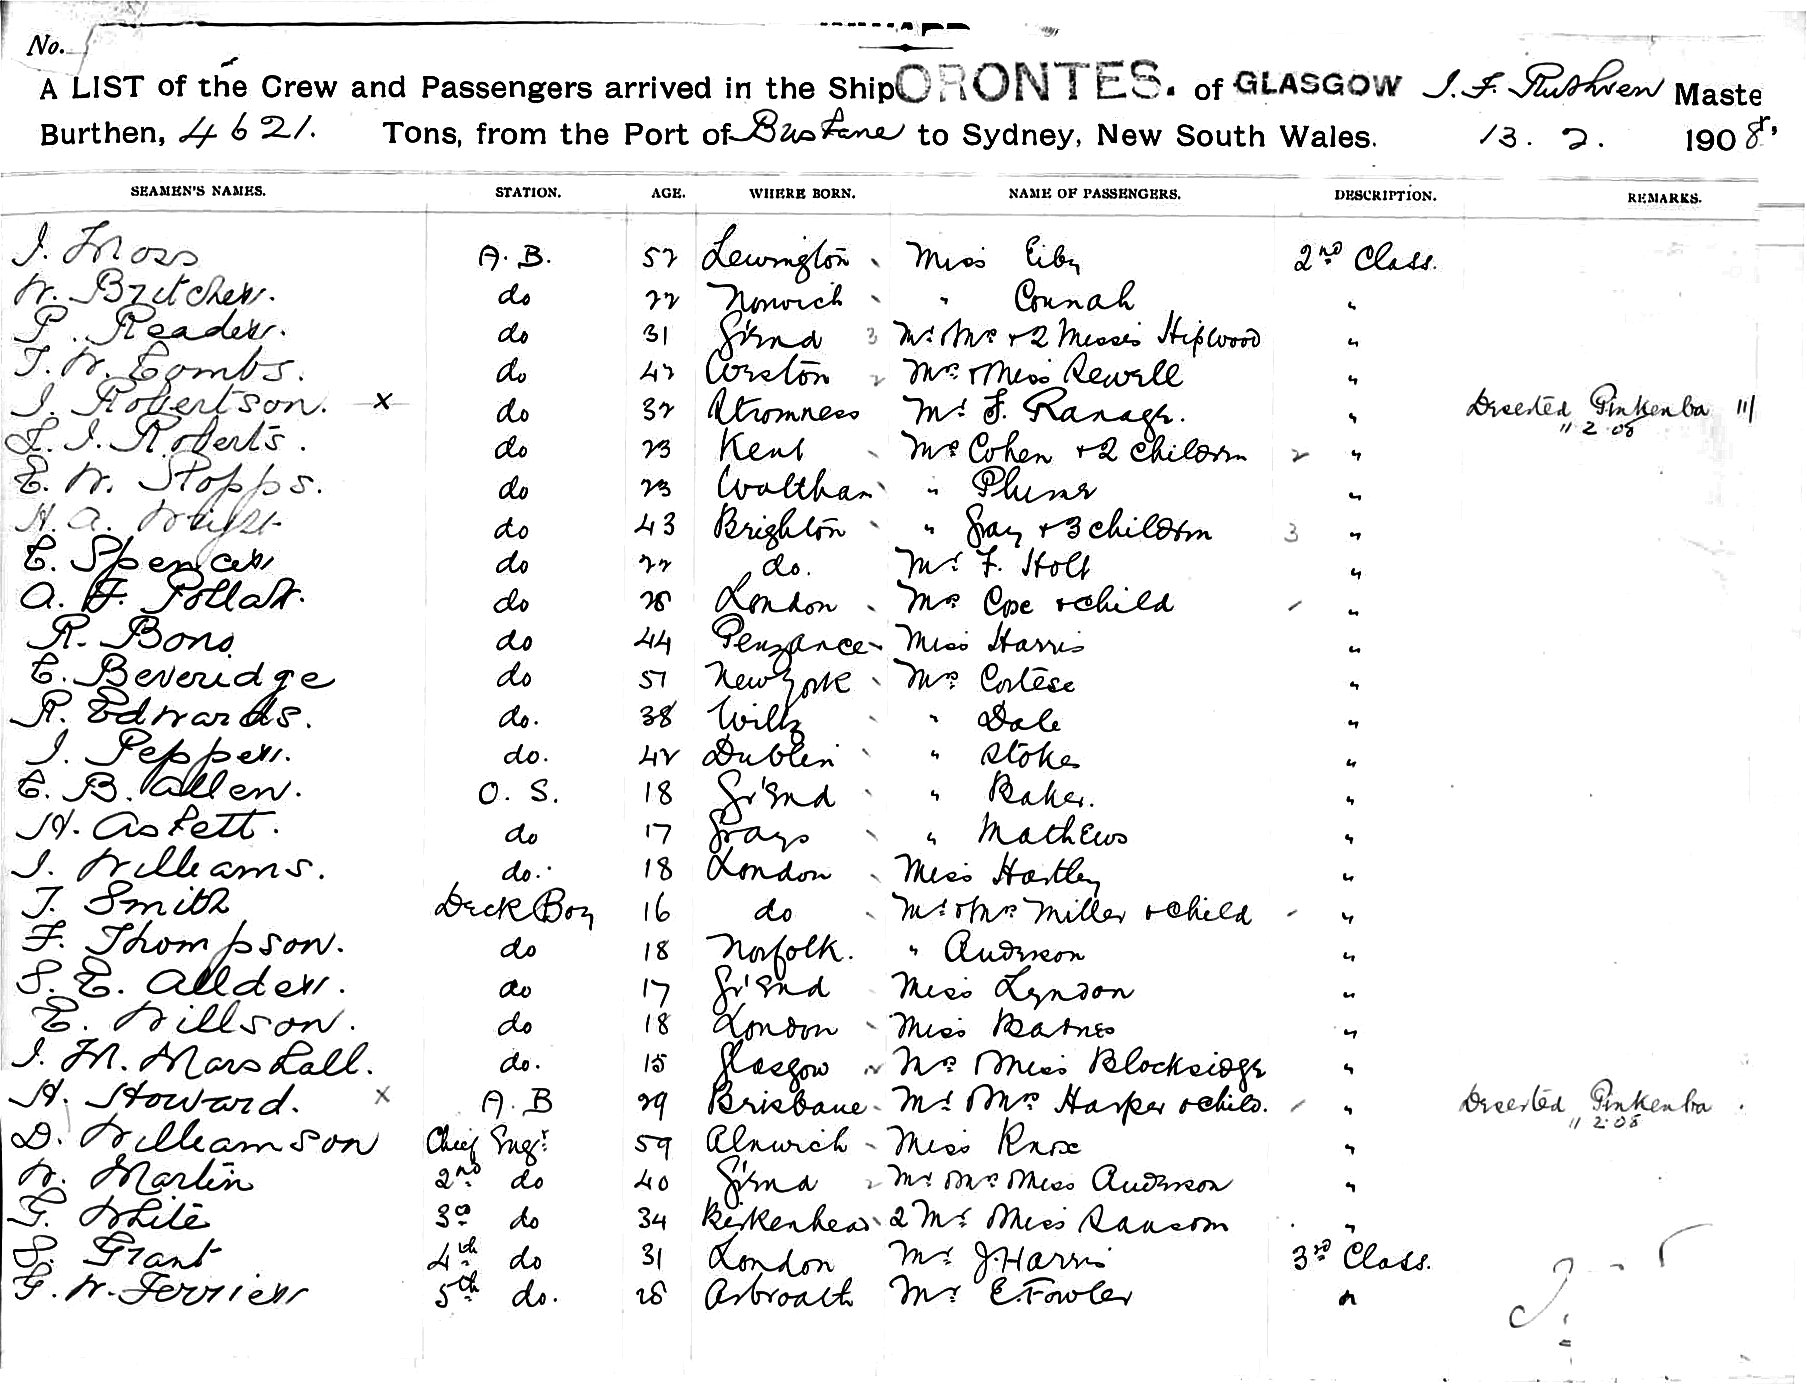 No.
A LIST of the Crew and Passengers arrived in the Ship ORONTES. of GLASGOW J. F. Ruthven Maste
Burthen, 4621. Tons, from the Port of Brisbane to Sydney, New South Wales. 13. 2. 1908,
SEAMEN'S NAMES. STATION. AGE. WHERE BORN. NAME OF PASSENGERS. DESCRIPTION. REMARKS.
J. Moss A. B. 52 Miss Eiby 2nd Class.
W. Butcher. do 22 Norwich " Connah "
P. Reader. do 31 Gr'End 3 Mr. Mrs + 2 Misses Hipwood "
T. W. Combs. do 42 Weston 2 Mrs + Miss Sewell "
J. Robertson. x do 32 Stromness Mr. F. Ranage. " Deserted Pinkenba 11/
11 2 08
F. J. Roberts. do 23 Kent Mrs Cohen + 2 children 2 "
E. W. Stopps. do 23 Waltham " "
H. A. Wright do 43 Brighton " Gray + 3 children 3 "
C. Spencer do 22 do. Mr. F. Holt "
A. F. Pollatt. do 28 London Mrs Coxe + child "
R. Bono do 44 Penzance Miss Harris "
C. Beveridge do 51 New York Mrs Cortese "
R. Edwards. do. 38 Wilts " Dale "
J. Pepper. do. 42 Dublin " Stokes "
C. B. Allen. O. S. 18 Gr'End " Baker. "
H. Askett. do 17 Grays " Mathews "
J. Williams. do. 18 London Miss Hartley "
T. Smith Deck Boy 16 do Mr. & Mrs Miller + child "
F. Thompson. do 18 Norfolk. " Anderson "
S. E. Allder. do 17 Gr'End Miss Lyndon "
E. Willson. do 18 London Miss Barnes "
J. M. Marshall. do. 15 Glasgow Mrs & Miss Blocksidge "
H. Howard. x A. B 29 Brisbane Mr & Mrs Harper & child. " Deserted Pinkenba
11 2. 08
D. Williamson Chief Engr. 59 Alnwich Miss Knox "
W. Martin 2nd do 40 Gr'End 2 Mr. Mrs & Miss Anderson "
G. White 3rd do 34 Birkenhead 2 Mr. & Miss Ransom "
S. Grant 4th do 31 London Mr. J. Harris 3rd Class.
G. W. Ferrier 5th do. 28 Arbroath Mr E. Fowler "